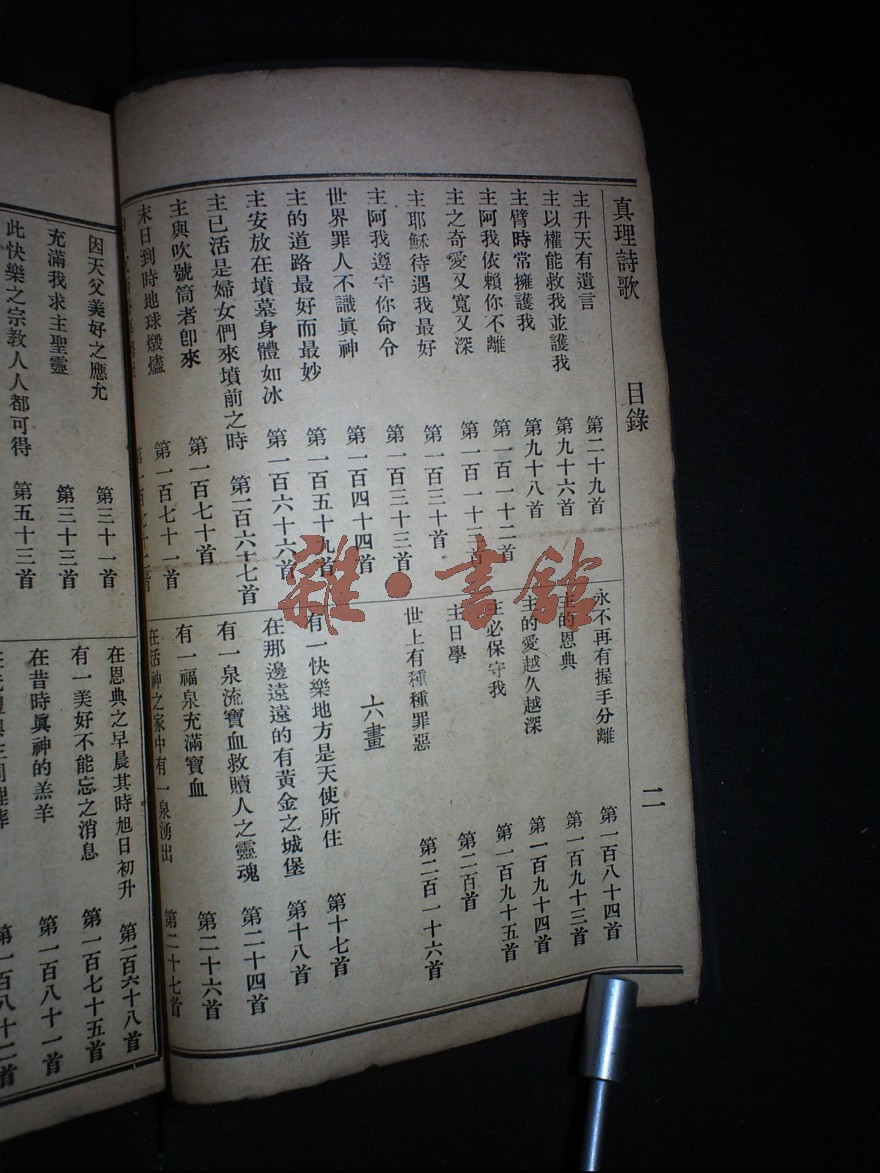 真理詩歌 目錄 二
主升天有遺言 第二十九首
主以權能救我並護我 第九十六首
主臂時常擁護我 第九十八首
主阿我依賴你不離 第一百一十二首
主之奇愛又寬又深 第一百一十三首
主耶穌待遇我最好 第一百三十首
主阿我遵守你命令 第一百三十三首
世界罪人不識眞神 第一百四十四首
主的道路最好而最妙 第一百五十九首
主安放在墳墓身體如冰 第一百六十六首
主已活是婦女們來墳前之時 第一百六十七首
主與吹號筒者卽來 第一百七十首
末日到時地球燬燼 第一百七十一首
永不再有握手分離 第一百八十四首
主的恩典 第一百九十三首
主的愛越久越深 第一百九十四首
主必保守我 第一百九十五首
主日學 第二百首
世上有種種罪惡 第二百一十六首
六畫
有一快樂地方是天使所住 第十七首
在那邊遠遠的有黃金之城堡 第十八首
有一泉流寶血救贖人之靈魂 第二十四首
有一福泉充滿寶血 第二十六首
在活神之家中有一泉湧出 第二十七首
因天父美好之應允 第三十一首
充滿我求主聖靈 第三十三首
此快樂之宗教人人都可得 第五十三首
在恩典之早晨其時旭日初升 第一百六十八首
有一美好不能忘之消息 第一百七十五首
在昔時眞神的羔羊 第一百八十一首
第一百八十二首
雜·書館